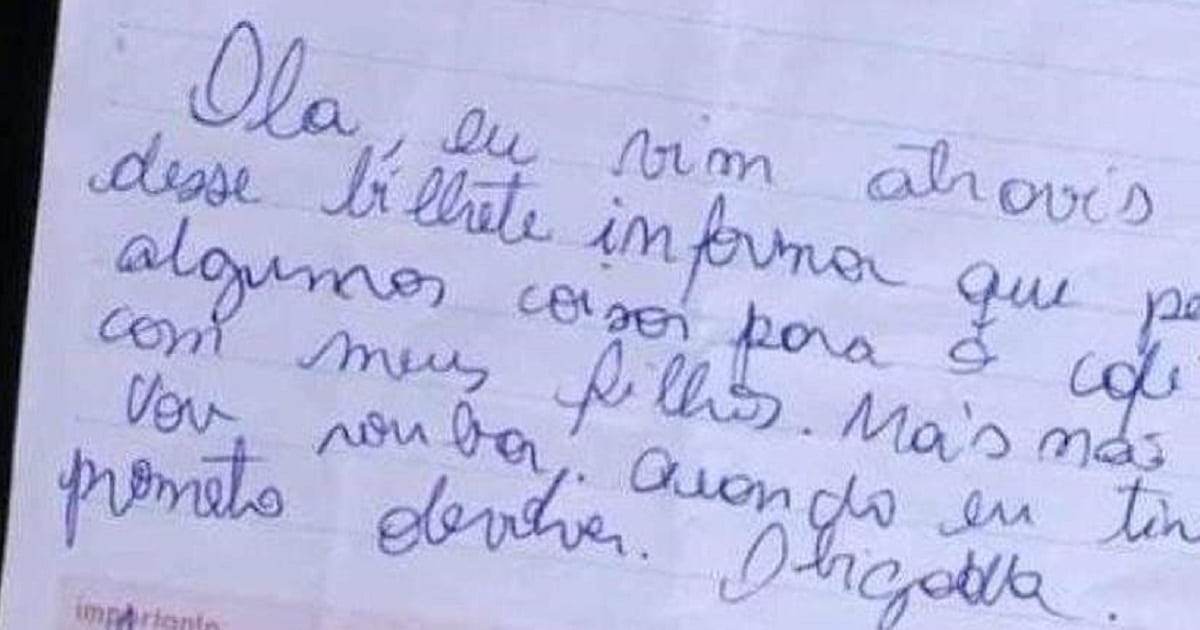 Ola, eu vim atravis
desse bilhete informar que pe
algumas coisas para o cafe
com meus filhos. Mais não
Vou roubar. Quando eu tin
prometo devolver. Obigada.
importante